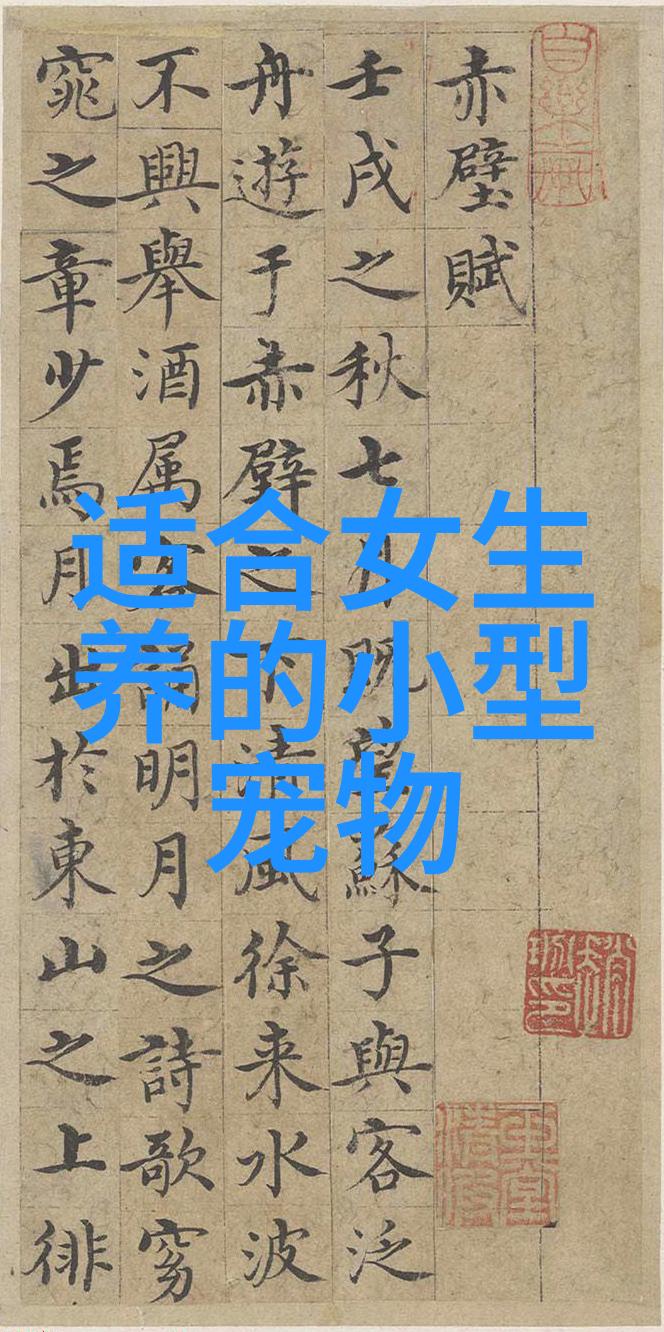 赤壁賦
壬戌之秋七月既望蘇子與客泛
舟遊于赤壁之下清風徐来水波
不興舉酒属客誦明月之詩歌窈
窕之章少焉月出於東山之上徘
适合女生
养的小型
宠物